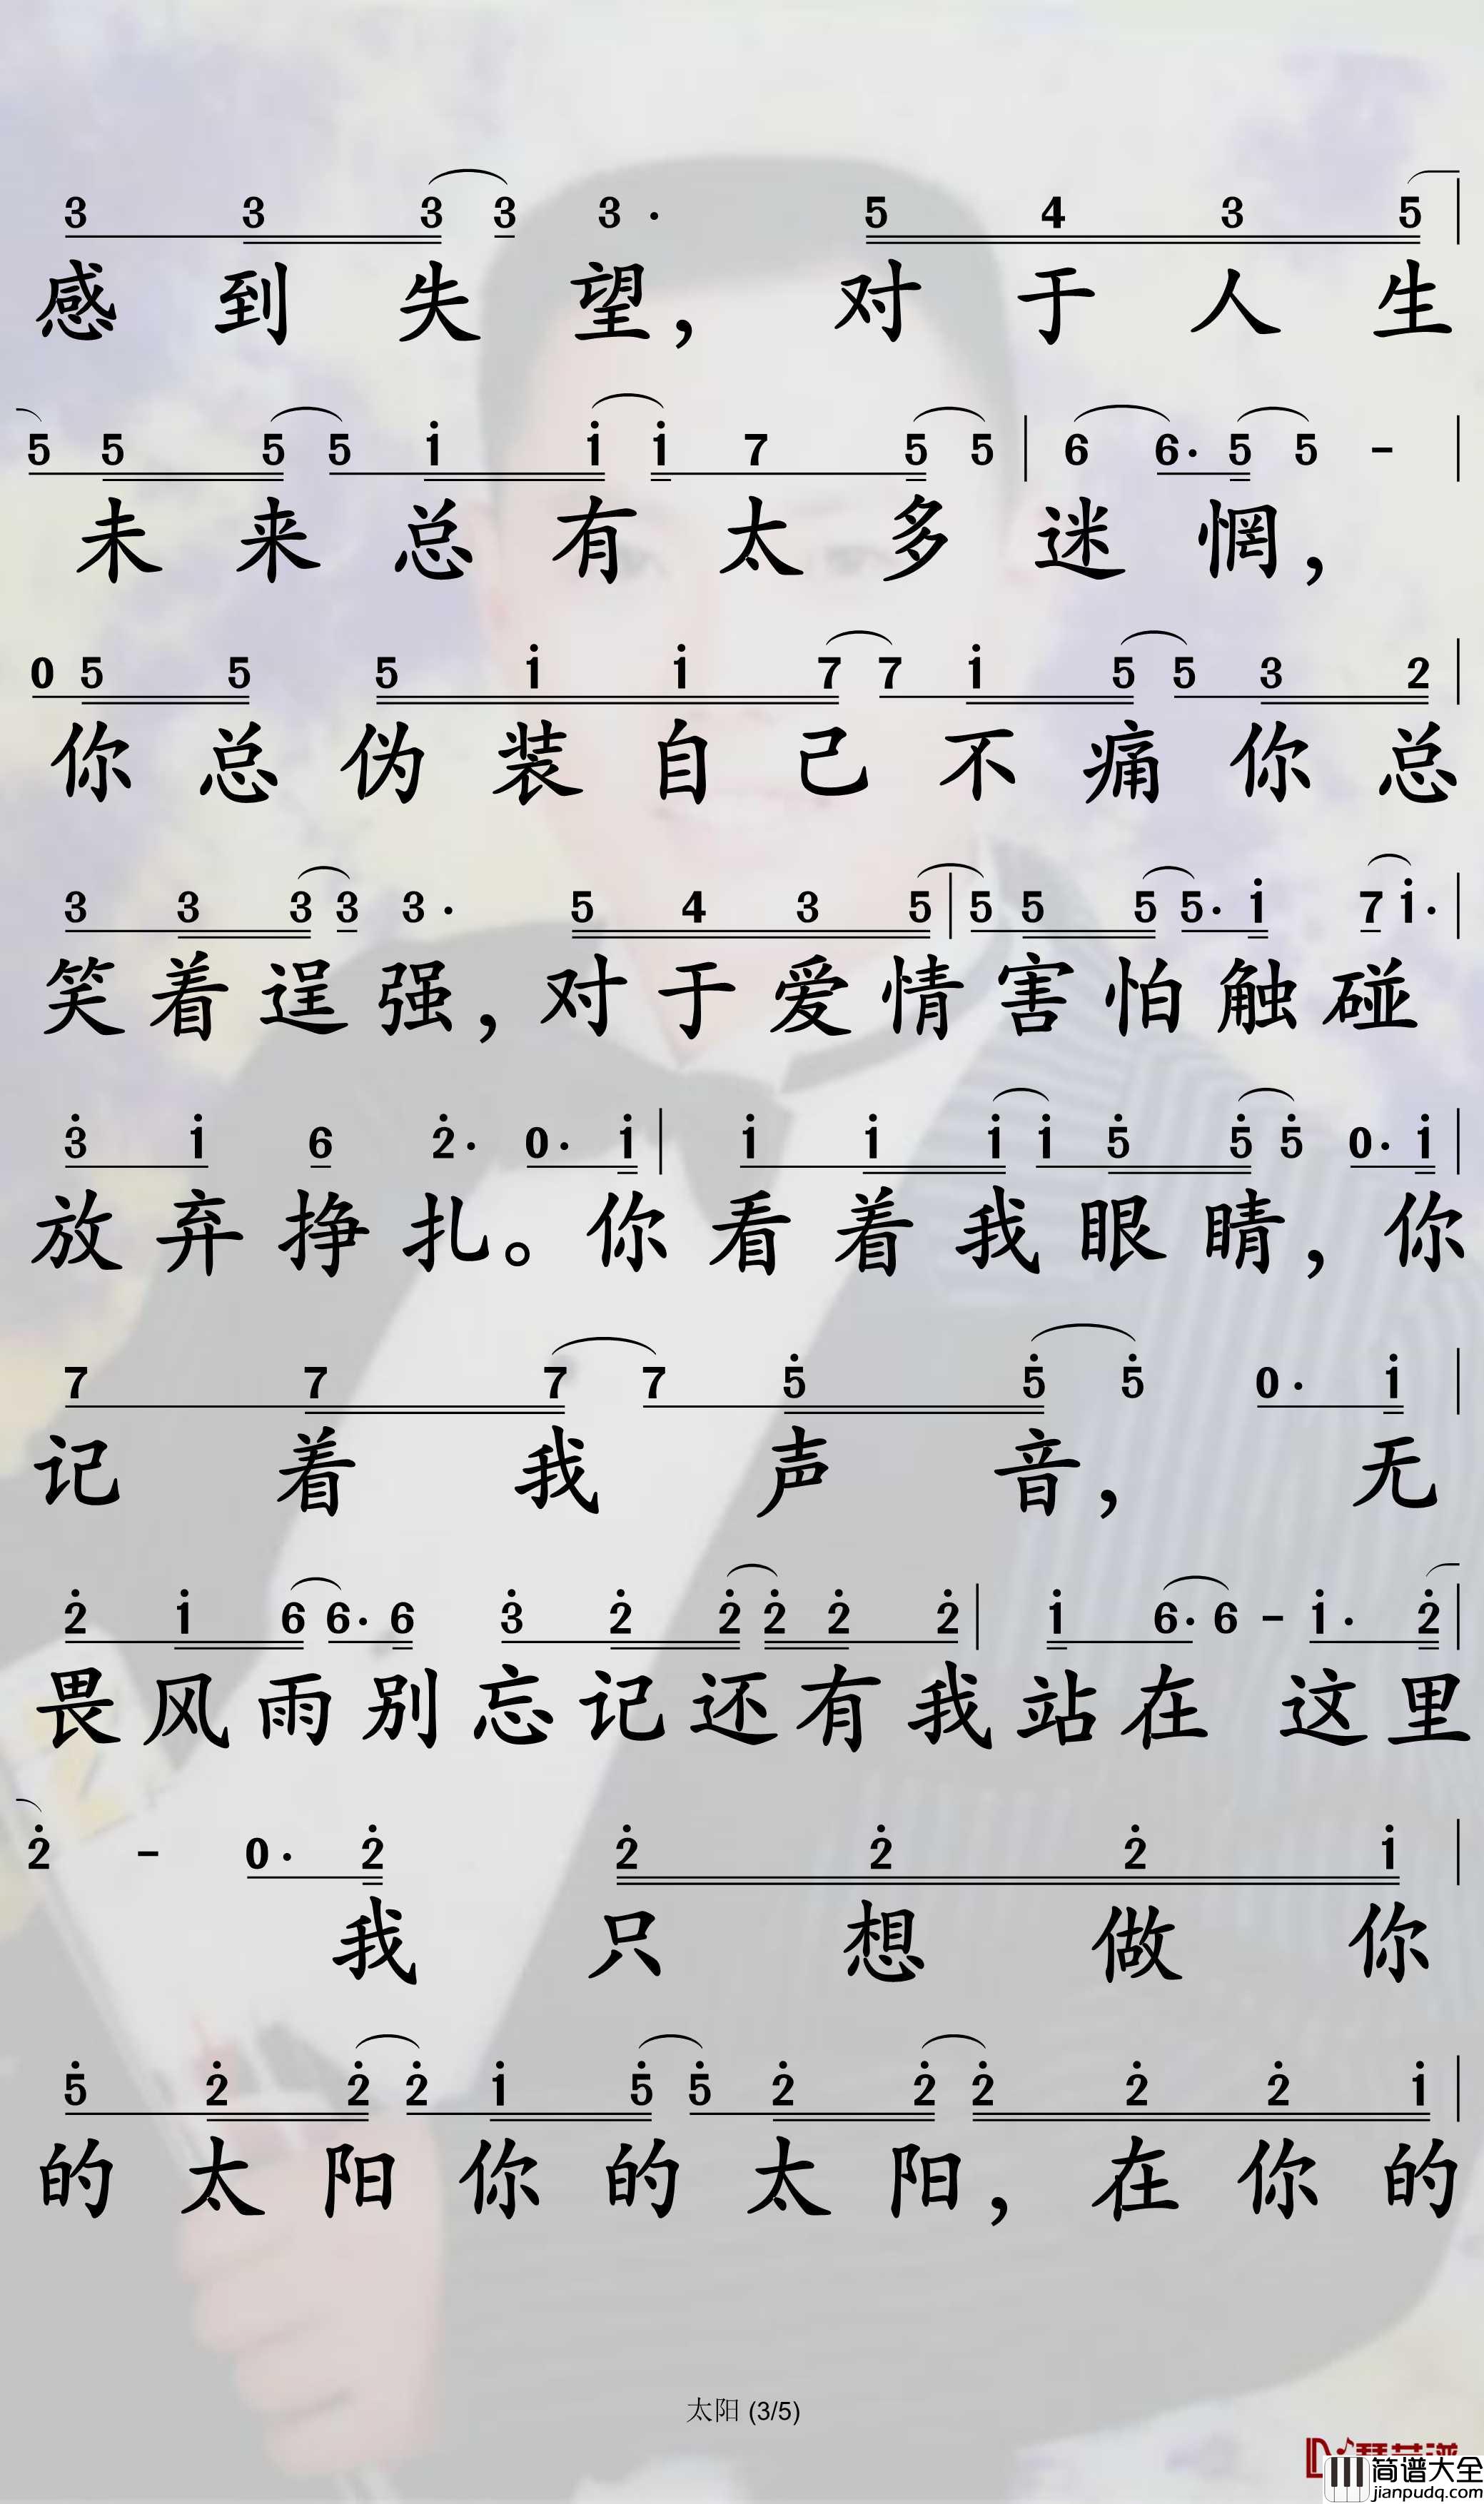 3 3 3 3 3· 5 4 3 5
感到失望，对于人生
5 5 5 5 i i i 7 5 5 | 6 6· 5 5 - |
未来总有太多迷惘，
0 5 5 5 i i 7 7 i 5 5 3 2 |
你总伪装自己不痛你总
3 3 3 3 3· 5 4 3 5 | 5 5 5 5· i 7 i· |
笑着逞强，对于爱情害怕触碰
3̇ i 6 2̇· 0· i | i i i i 5̇ 5̇ 5̇ 0· i |
放弃挣扎。你看着我眼睛，你
7 7 7 7 5̇ 5̇ 5̇ 0· i |
记着我声音，无
2̇ i 6 6· 6 3̇ 2̇ 2̇ 2̇ 2̇ 2̇ | i 6· 6 - i· 2̇ |
畏风雨别忘记还有我站在这里
2̇ - 0· 2̇ 2̇ 2̇ 2̇ i |
我只想做你
5̇ 2̇ 2̇ 2̇ i 5̇ 5̇ 2̇ 2̇ 2̇ 2̇ 2̇ i |
的太阳你的太阳，在你的
太阳 (3/5)
简谱大全
jianpudq.com